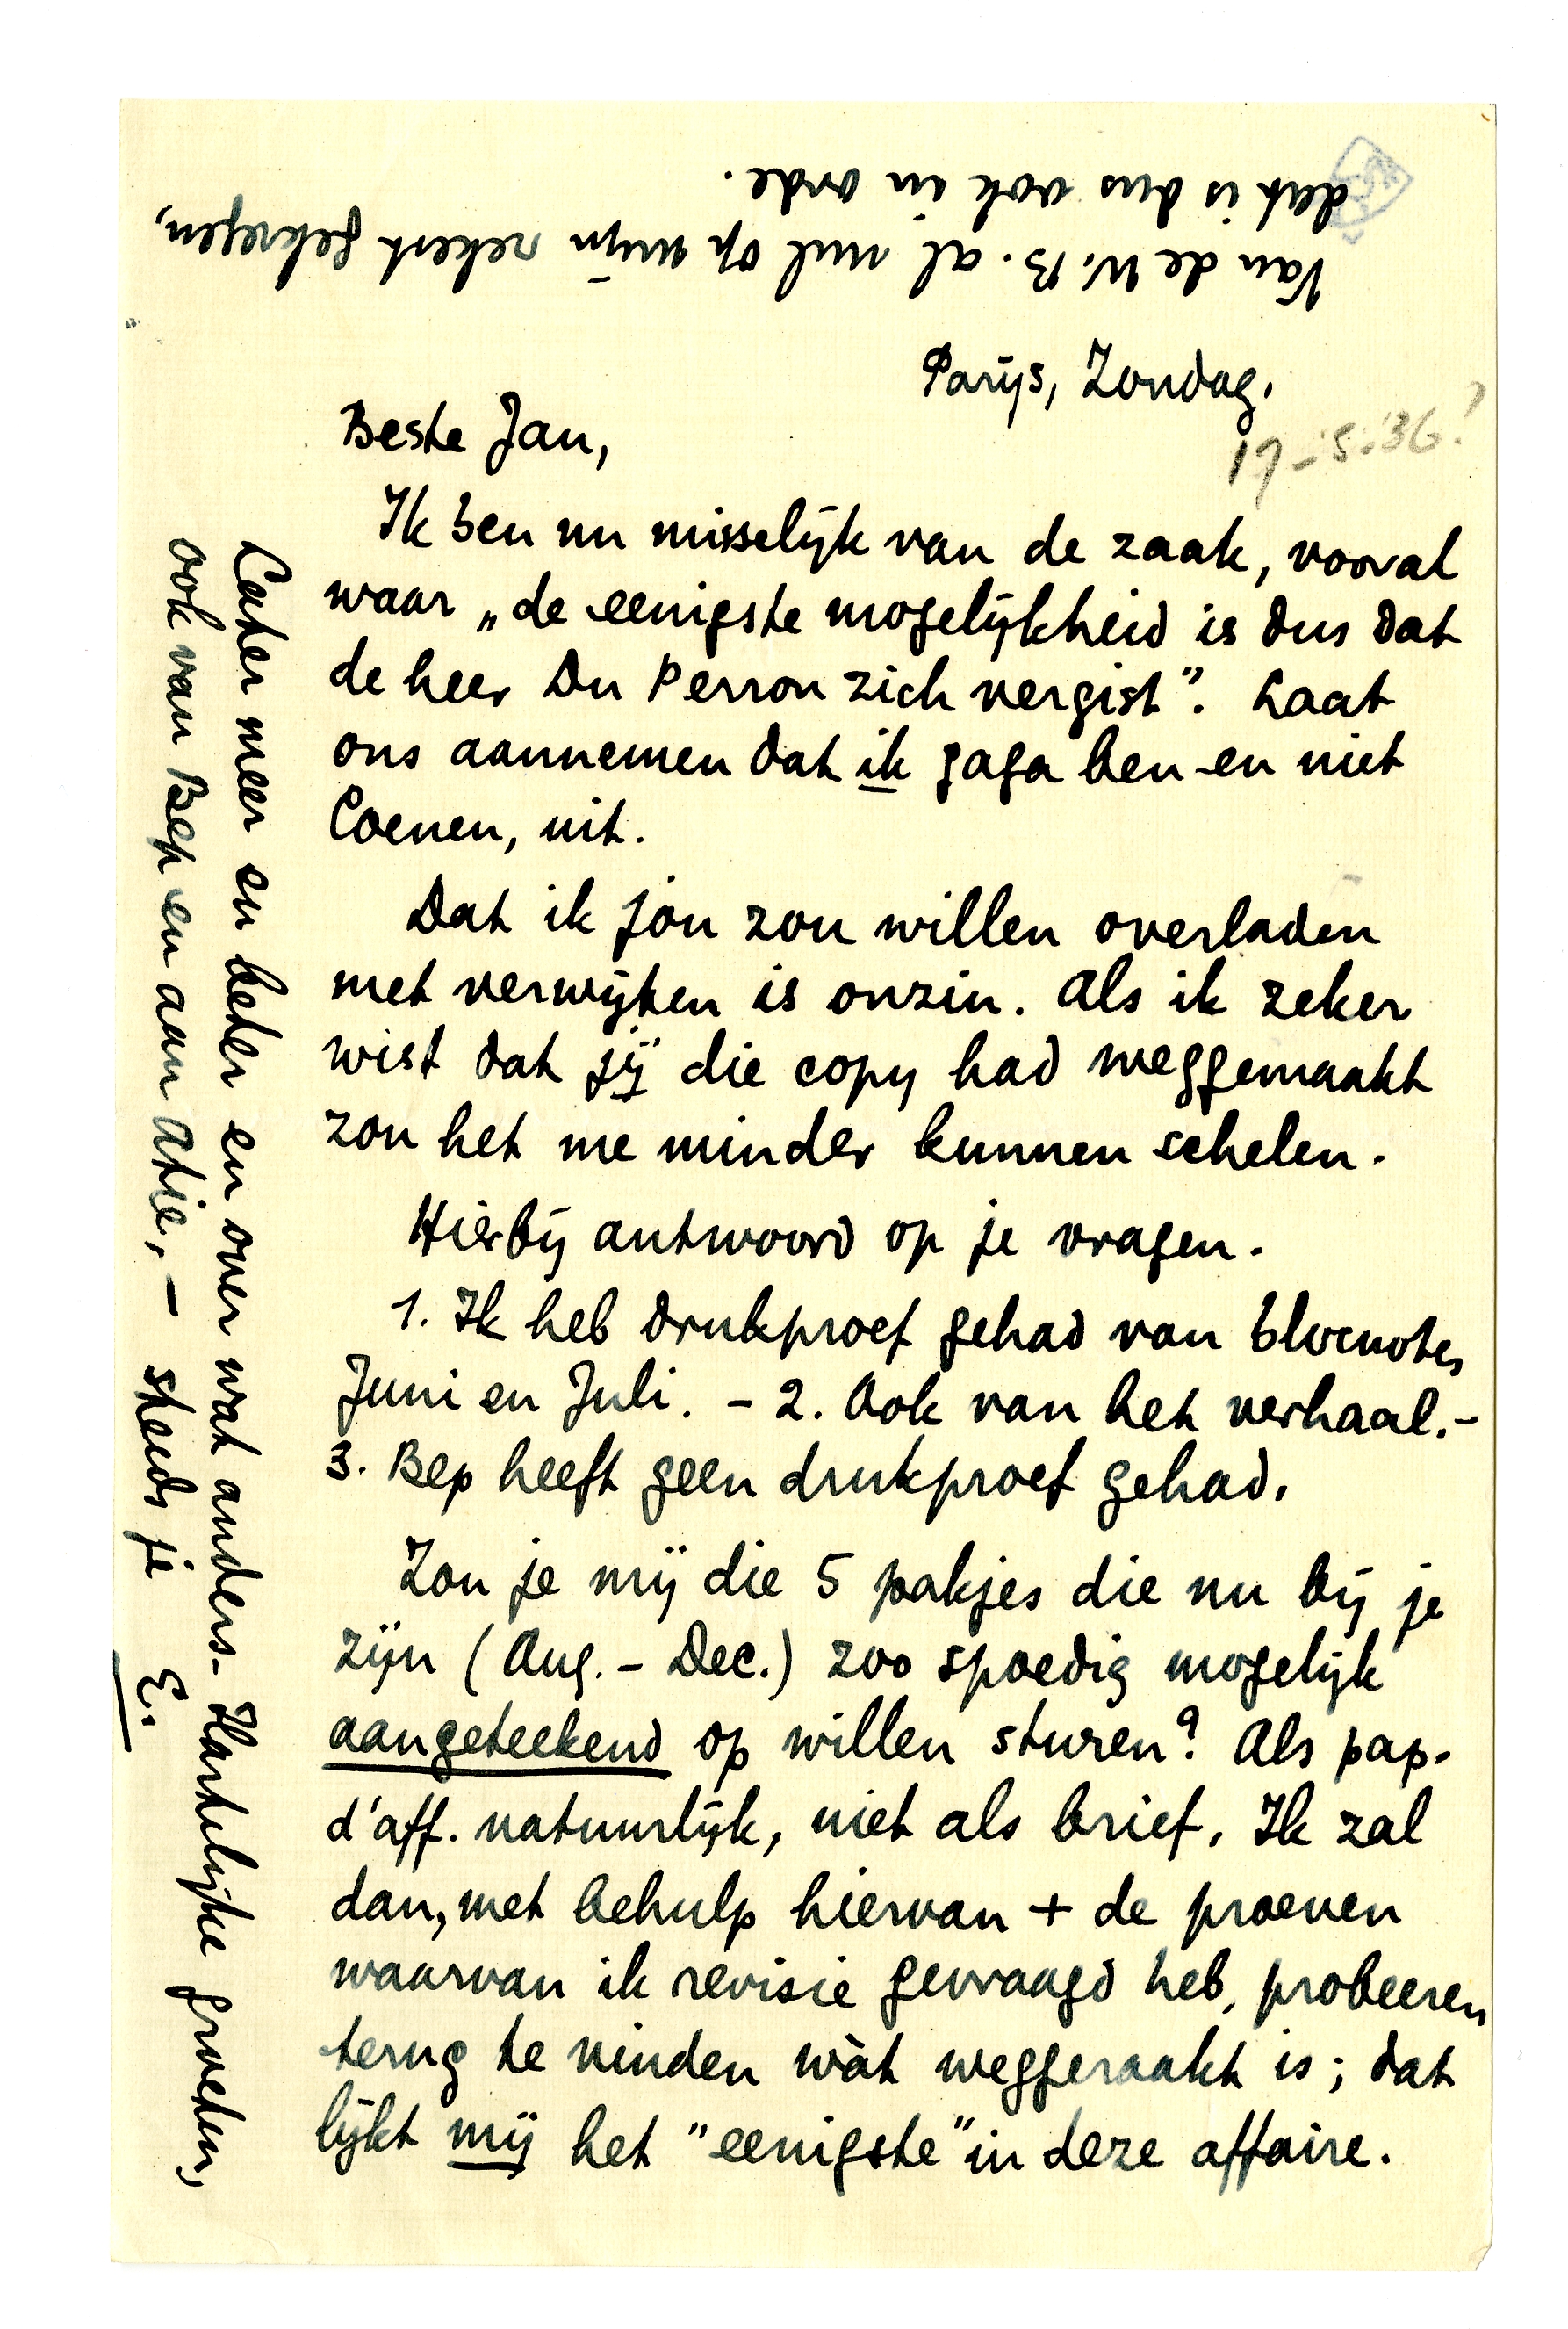 Parijs, Zondag.
17-5-'36?
Beste Jan,
Ik ben nu misselijk van de zaak, vooral
waar „de eenigste mogelijkheid is dus dat
de heer Du Perron zich vergist”. Laat
ons aannemen dat ik gaga ben en niet
Coenen, uit.
Dat ik jou zou willen overladen
met verwijten is onzin. Als ik zeker
wist dat jij die copy had weggemaakt
zou het me minder kunnen schelen.
Hierbij antwoord op je vragen.
1. Ik heb drukproef gehad van blocnotes
Juni en Juli. - 2. Ook van het verhaal. -
3. Bep heeft geen drukproef gehad.
Zou je mij die 5 pakjes die nu bij je
zijn (Aug. - Dec.) zoo spoedig mogelijk
aangeteekend op willen sturen? Als pap.
d'aff. natuurlijk, niet als brief. Ik zal
dan, met behulp hiervan + de proeven
waarvan ik revisie gevraagd heb, probeeren
terug te vinden wàt weggeraakt is; dat
lijkt mij het "eenigste" in deze affaire.
Later meer en beter en over wat anders. Hartelijke groeten,
ook van Bep en aan Atie, - steeds je E.
Van de W.B. al nul op mijn rekest gekregen,
dat is dus ook in orde.